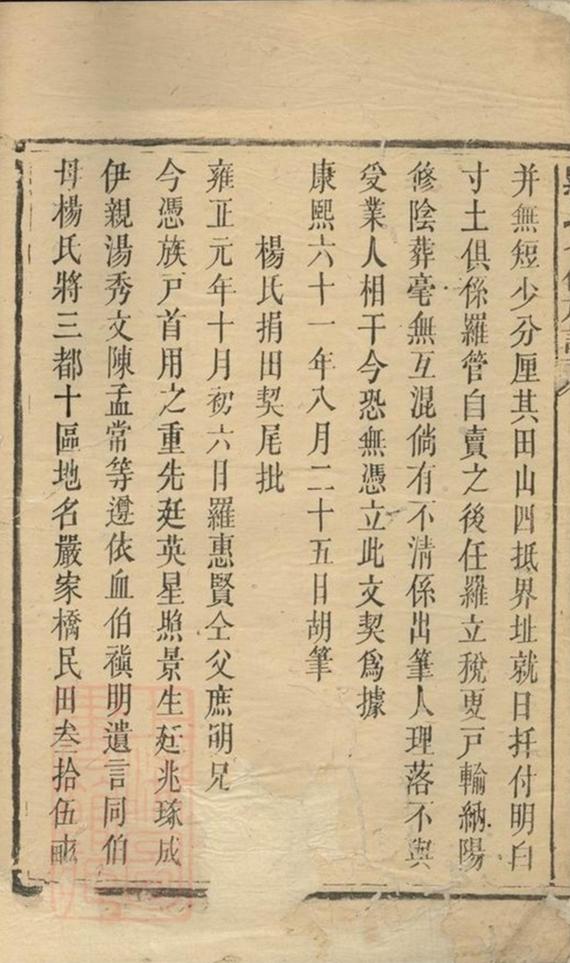 并無短少分厘其田山四抵界址就日扦付明白
寸土俱係羅管自賣之後任羅立稅更戸輸納陽
修陰葬毫無互混倘有不清係出筆人理落不與
受業人相干今恐無憑立此文契為據
康熙六十一年八月二十五日胡筆
楊氏捐田契尾批
雍正元年十月初六日羅惠賢仝父庶明兄
今憑族戸首用之重先廷英星照景生廷兆琢成
伊親湯秀文陳孟常等遵依血伯禛明遺言同伯
母楊氏將三都十區地名嚴家橋民田叁拾伍畝